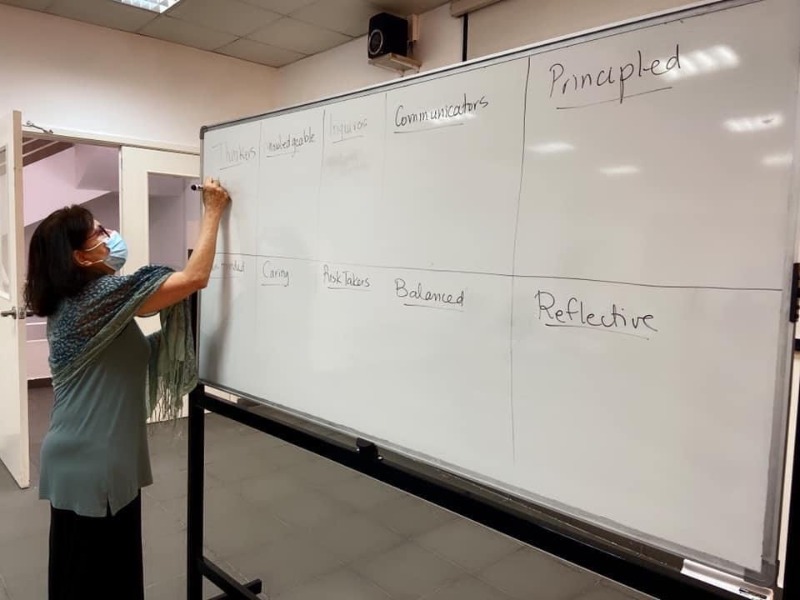 Thinkers
Knowledgeable
Communicators
Principled
minded
Caring
Risk Takers
Balanced
Reflective